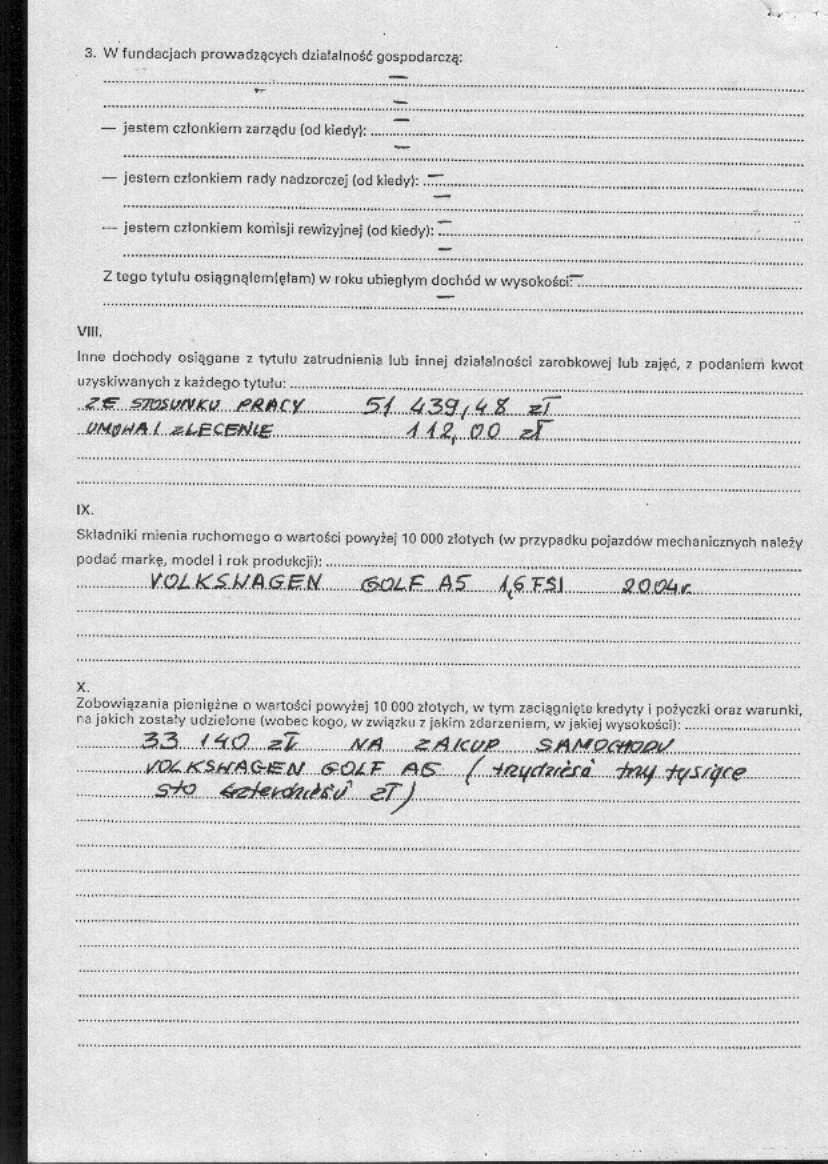 3. W fundacjach prowadzących działalność gospodarczą:
—
—
— jestem członkiem zarządu (od kiedy): —
—
— jestem członkiem rady nadzorczej (od kiedy): —
—
— jestem członkiem komisji rewizyjnej (od kiedy): —
—
Z tego tytułu osiągnąłem(ęłam) w roku ubiegłym dochód w wysokości: —
—
VIII.
Inne dochody osiągane z tytułu zatrudnienia lub innej działalności zarobkowej lub zajęć, z podaniem kwot
uzyskiwanych z każdego tytułu:
ZE STOSUNKU PRACY 51 439,48 zł
UMOWA / ZLECENIE 112,00 zł
IX.
Składniki mienia ruchomego o wartości powyżej 10 000 złotych (w przypadku pojazdów mechanicznych należy
podać markę, model i rok produkcji):
VOLKSWAGEN GOLF A5 1,6 FSI 2004r.
X.
Zobowiązania pieniężne o wartości powyżej 10 000 złotych, w tym zaciągnięte kredyty i pożyczki oraz warunki,
na jakich zostały udzielone (wobec kogo, w związku z jakim zdarzeniem, w jakiej wysokości):
33 140 zł NA ZAKUP SAMOCHODU
VOLKSWAGEN GOLF A5 ( trzydzieści trzy tysiące
sto czterdzieści zł )